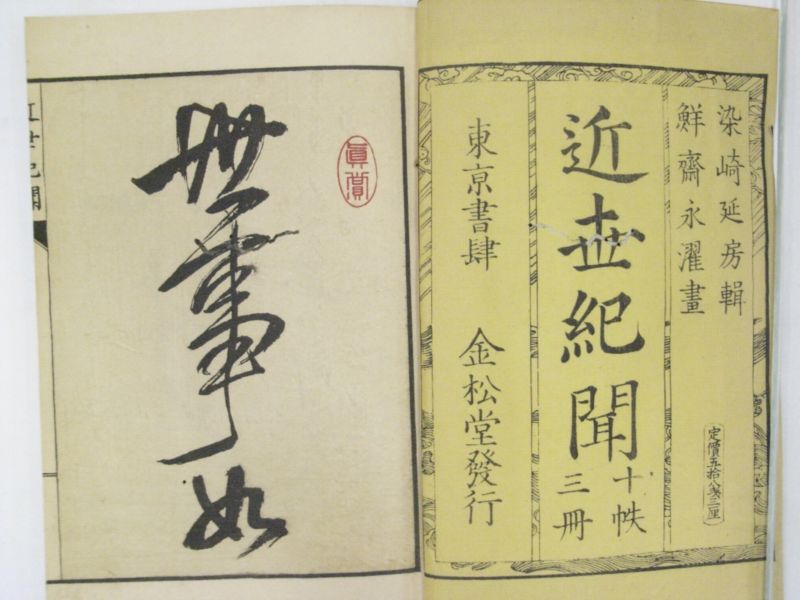 染崎延房輯
鮮齋永濯畫
定價五拾八銭三厘
近世紀聞
十帙
三冊
東京書肆 金松堂發行
眞賞
世事如
近世紀聞